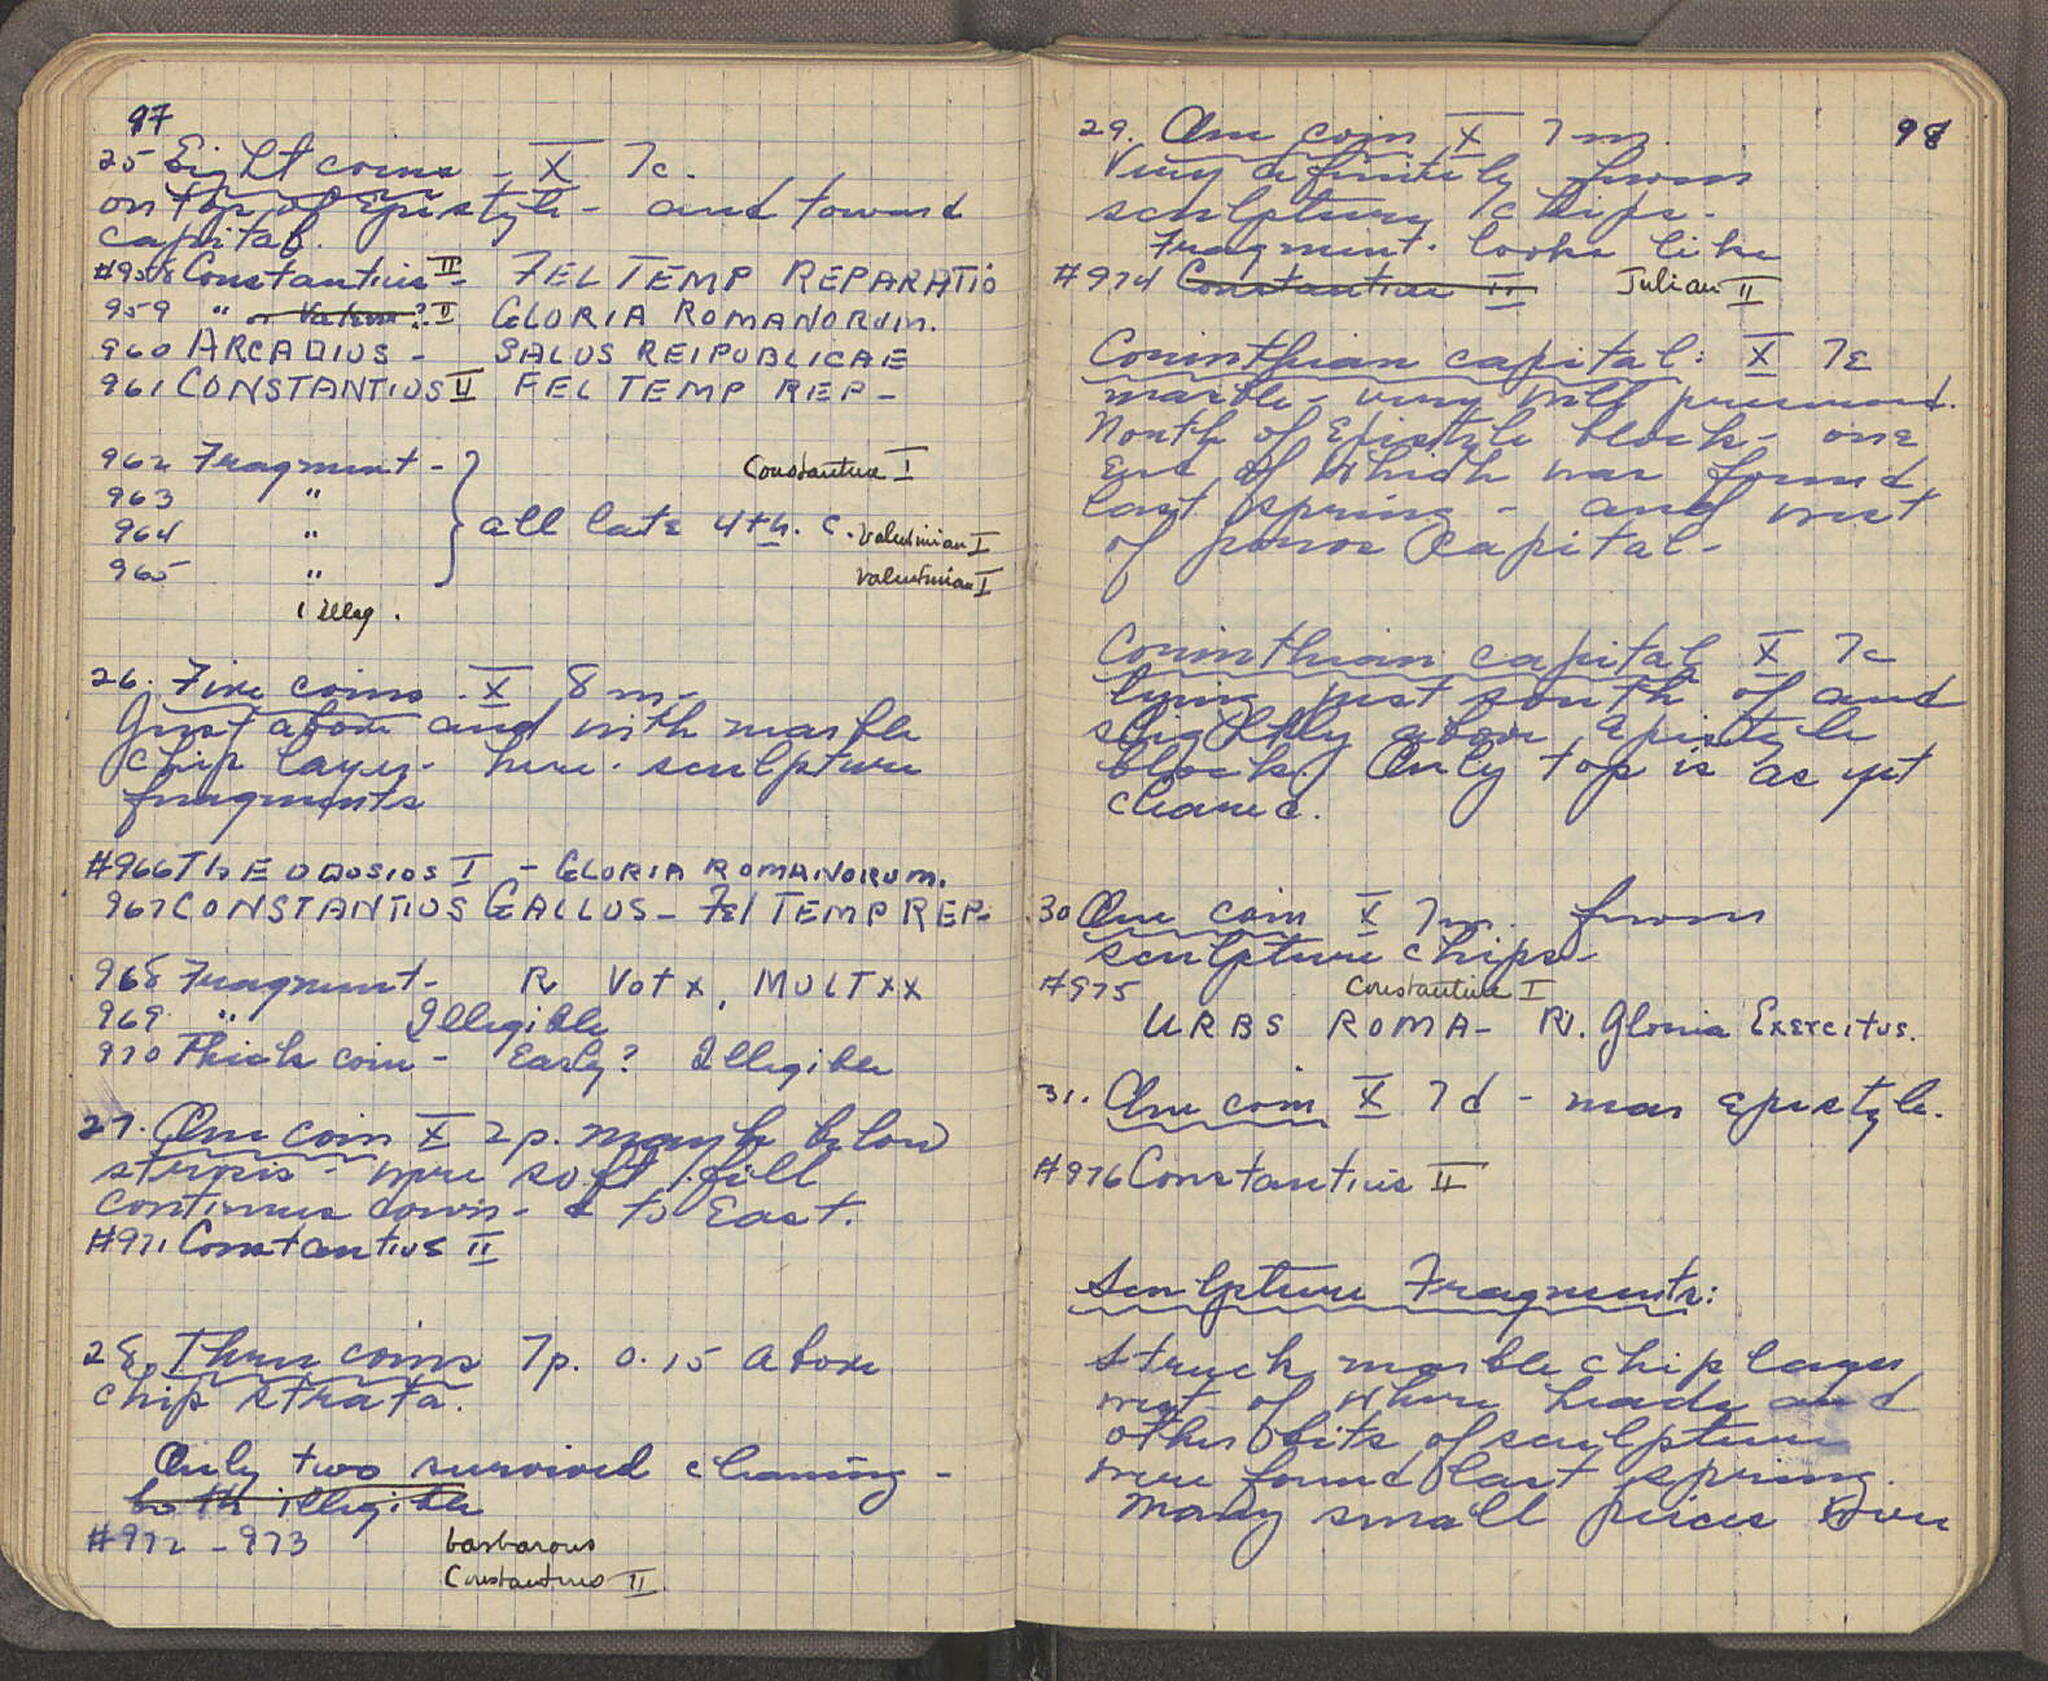 97
25 Eight coins - X 7c.
on top of Epistyle - and toward
capital.
#958 Constantius II - FEL TEMP REPARATIO
959 " or Valens? II GLORIA ROMANORUM.
960 ARCADIUS - SALUS REIPUBLICAE
961 CONSTANTIUS II FEL TEMP REP -
962 Fragment - Constantine I
963 "
964 " all late 4th. c. Valentinian I
965 " Valentinian I
1 illeg.
26. Five coins. X 8m -
Just above and with marble
chip layer - here - sculpture
fragments
#966 ThEODOSIOS I - GLORIA ROMANORUM.
967 CONSTANTIUS GALLUS - Fel TEMP REP -
968 Fragment - R Vot X, MULT XX
969 " Illegible
970 Thick coin - Early? Illegible
27. One coin X 2p. maybe below
strosis - where soft fill
continues down - & to East.
#971 Constantius II
28. Three coins 7p. 0.15 above
chip strata.
Only two survived cleaning -
both illegible
#972 - 973 barbarous
Constantius II
98
29. One coin X 7m
Very definitely from
sculpture chips.
Fragment. looks like
#974 Constantius II Julian II
Corinthian capital: X 7E
marble - very well preserved.
North of Epistyle block - one
End of which was found
last spring - and west
of poros capital -
Corinthian capital X 7c
lying just south of and
slightly above epistyle
block. Only top is as yet
cleared.
30 One coin X 7m. from
sculpture chips -
#975 Constantine I
URBS ROMA - R. Gloria Exercitus.
31. One coin X 7d - near epistyle.
#976 Constantius II
Sculpture Fragments:
Struck marble chip layer
west of where heads and
other bits of sculpture
were found last spring.
Many small pieces over